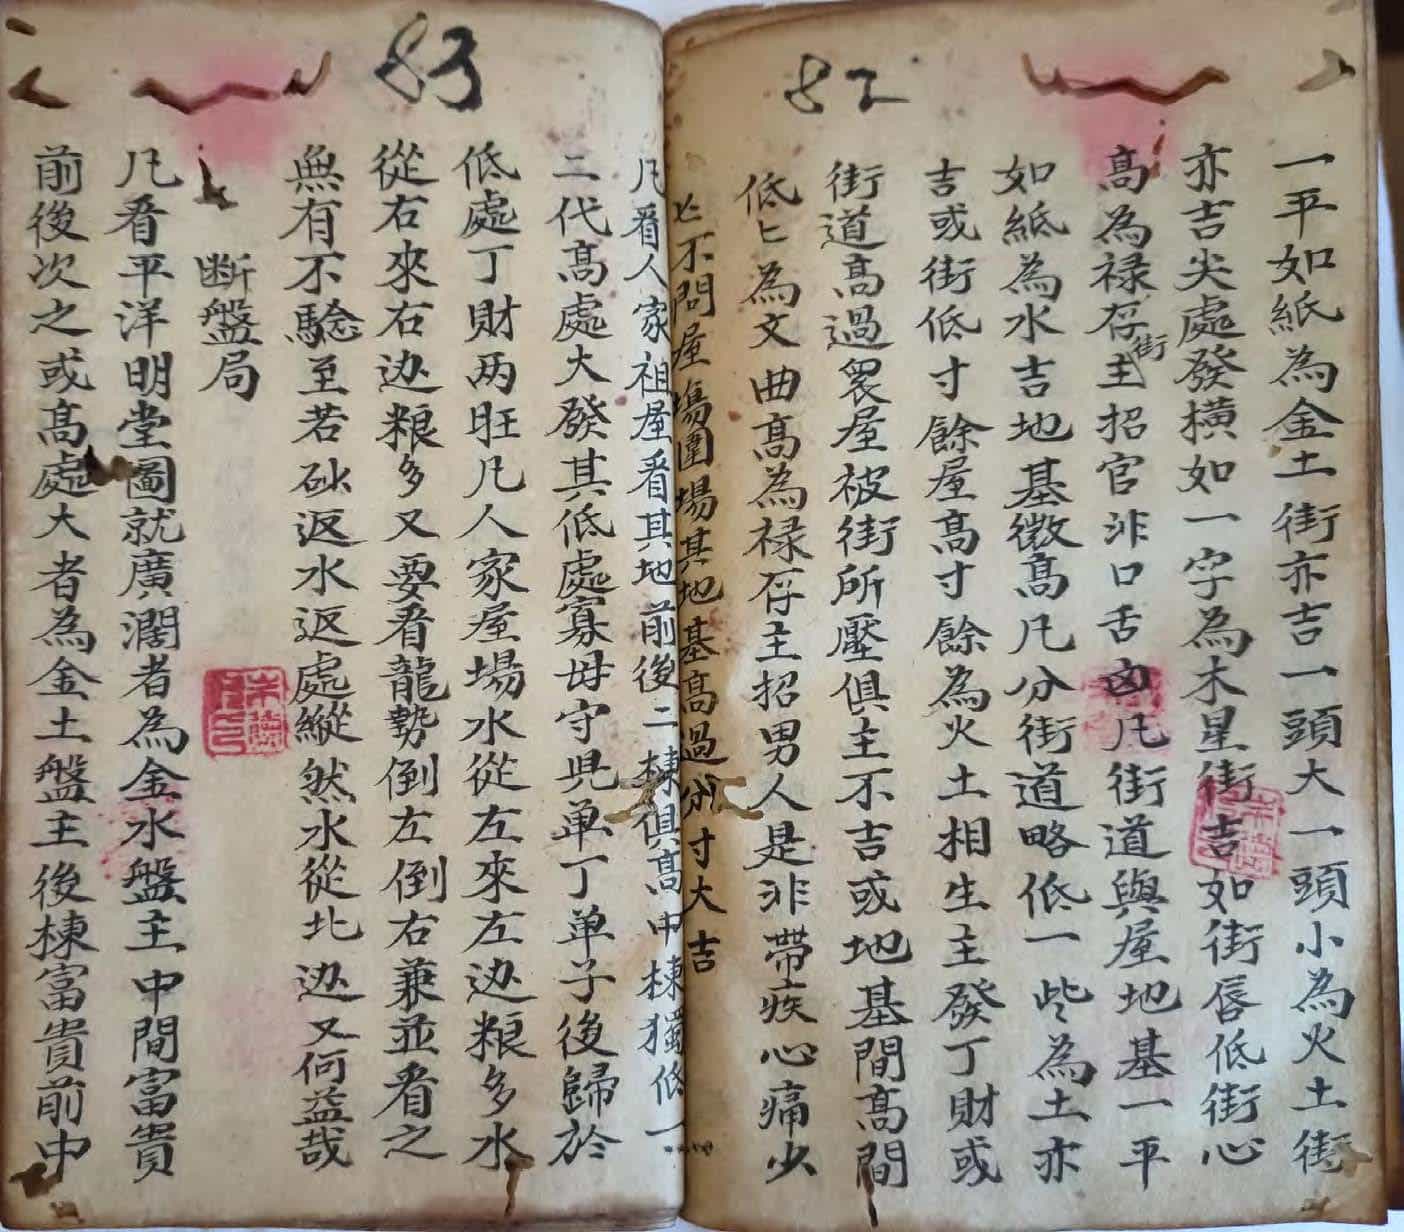 82
一平如紙為金土街亦吉一頭大一頭小為火土街
亦吉尖處發橫如一字為木星街吉如街唇低街心
高為禄存主招官非口舌凶凡街道與屋地基一平
街
如紙為水吉地基微高凡分街道略低一些為土亦
吉或街低寸餘屋高寸餘為火土相生主發丁財或
街道高過眾屋被街所壓俱主不吉或地基間高間
低匕為文曲高為禄存主招男人是非帶疾心痛少
亡不問屋塲圍場其地基高過分寸大吉
83
凡看人家祖屋看其地前後二棟俱高中棟獨低一
二代高處大發其低處寡母守児单丁单子後歸於
低處丁財两旺凡人家屋場水從左來左边粮多水
從右來右边粮多又要看龍勢倒左倒右兼並看之
無有不驗至若砂返水返處縱然水從北边又何益哉
断盤局
凡看平洋明堂圖就廣濶者為金水盤主中間富貴
前後次之或高處大者為金土盤主後棟富貴前中